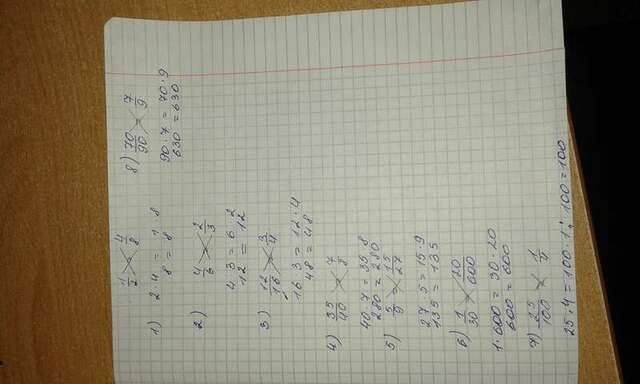 1) 1/2 = 4/8
2 · 4 = 1 · 8
8 = 8
2) 4/6 = 2/3
4 · 3 = 6 · 2
12 = 12
3) 12/16 = 3/4
16 · 3 = 12 · 4
48 = 48
4) 35/40 = 7/8
40 · 7 = 35 · 8
280 = 280
5) 5/9 = 15/27
27 · 5 = 15 · 9
135 = 135
6) 1/30 = 20/600
1 · 600 = 30 · 20
600 = 600
7) 25/100 = 1/4
25 · 4 = 100 · 1; 100 = 100
8) 70/90 = 7/9
90 · 7 = 70 · 9
630 = 630